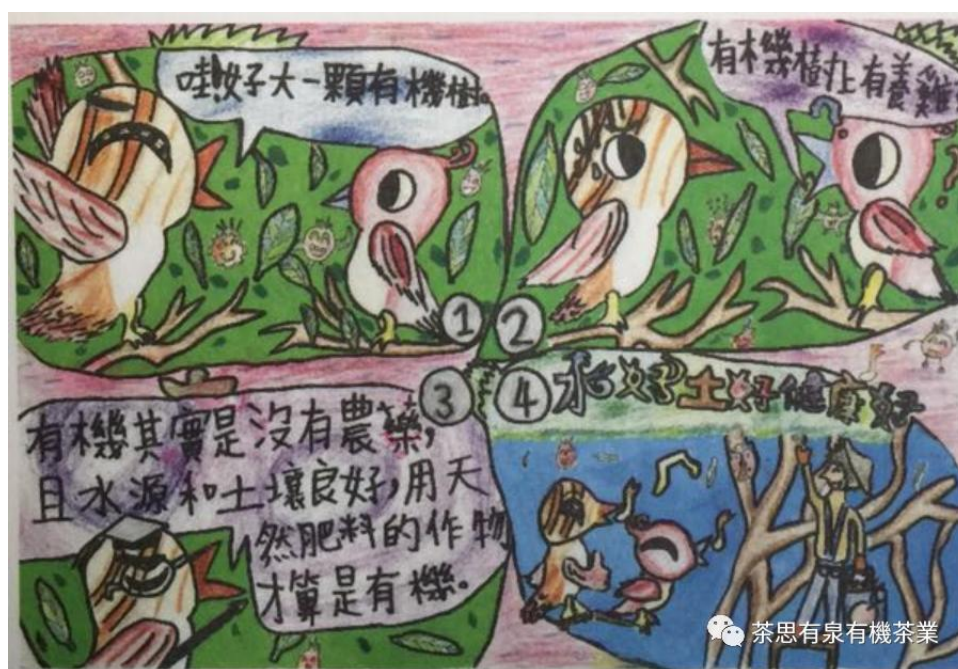 哇!好大一顆有機樹。
有機樹上有養雞
1
2
3
有機其實是沒有農藥,
且水源和土壤良好,用天
然肥料的作物
才算是有機。
4
水好土好健康好
茶思有泉有機茶業